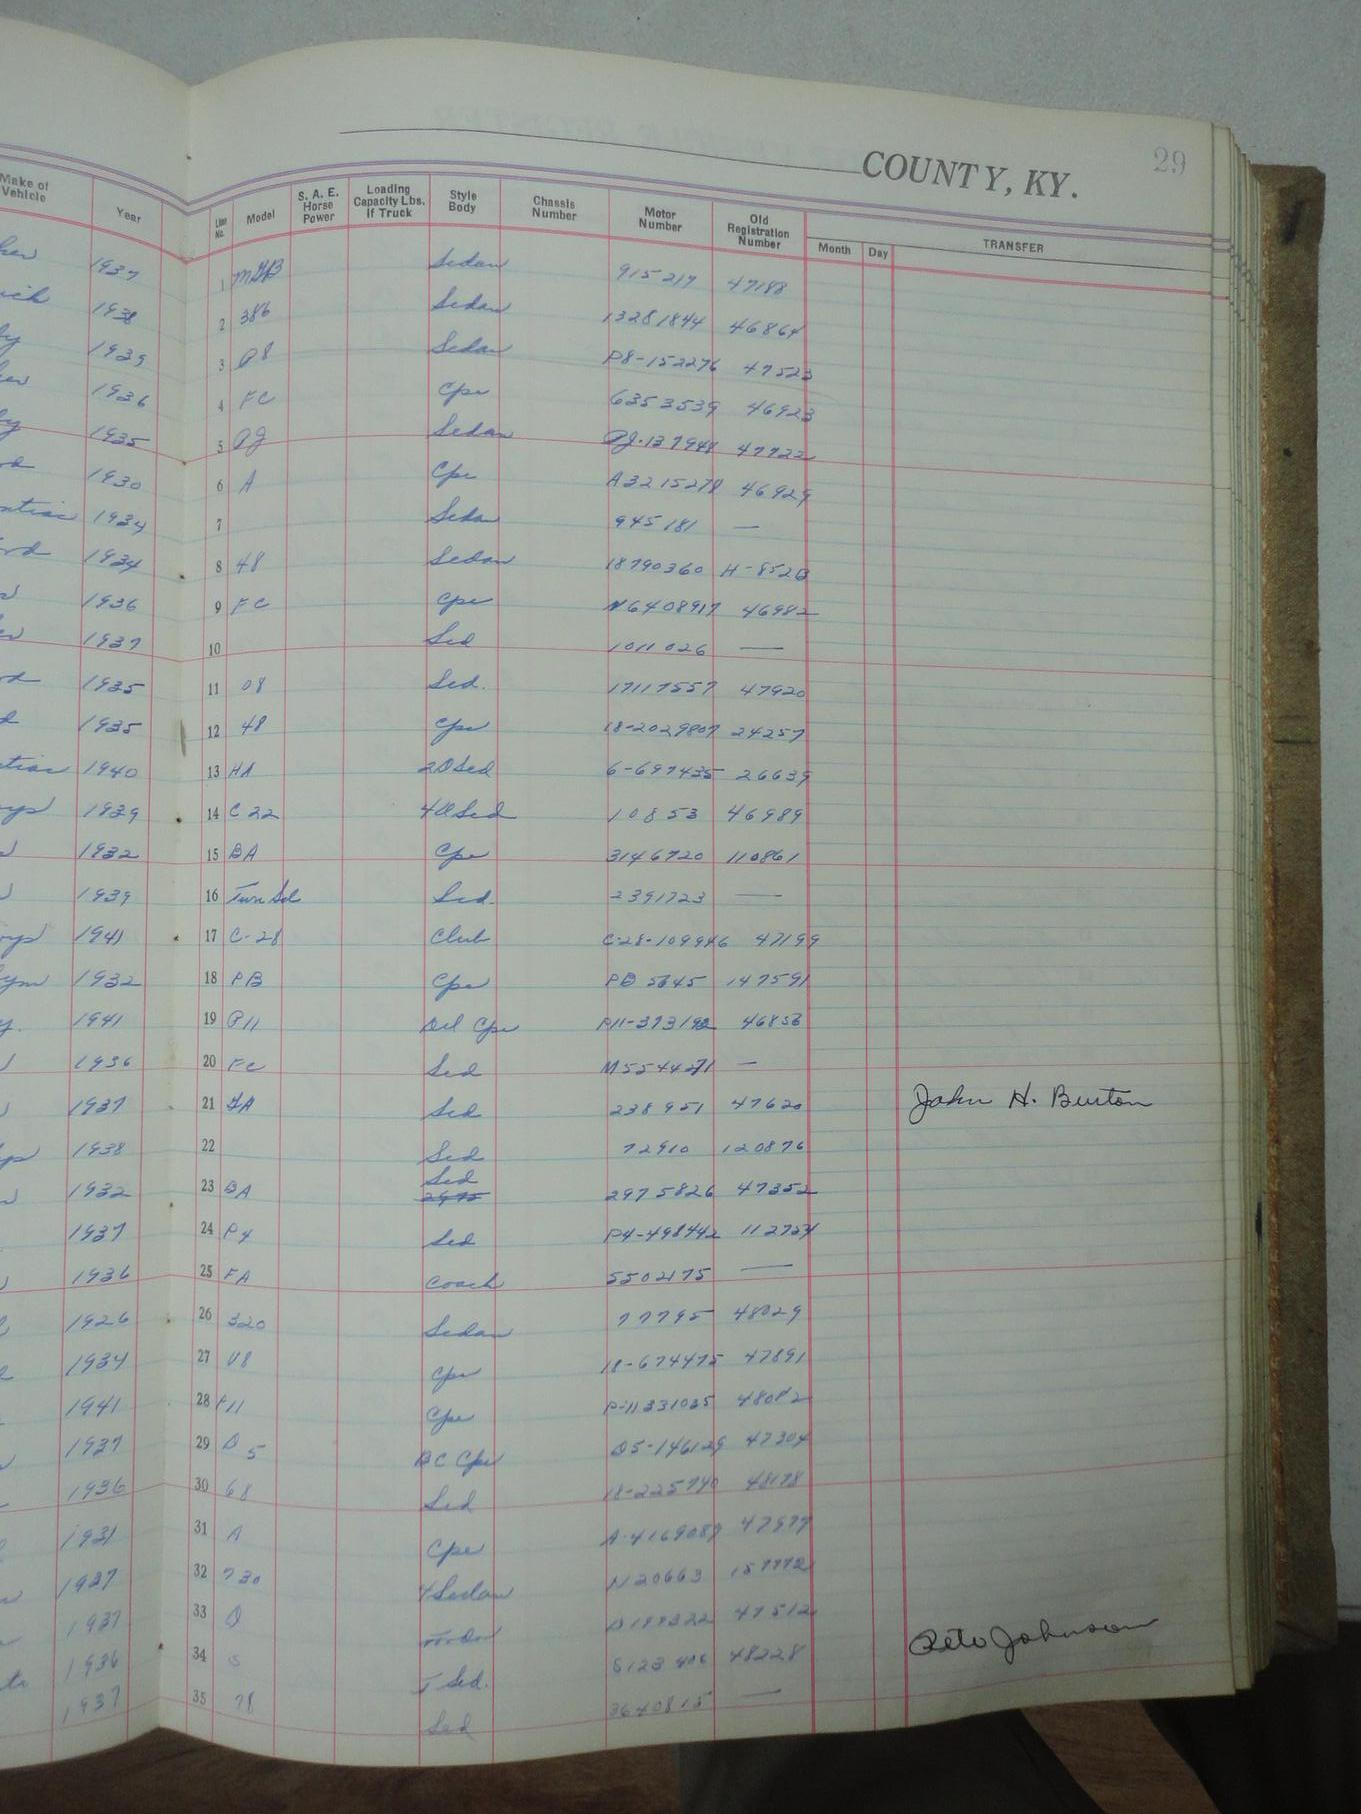 COUNTY, KY.
29
Make of Vehicle Year Line No. Model S. A. E. Horse Power Loading Capacity Lbs. If Truck Style Body Chassis Number Motor Number Old Registration Number Month Day TRANSFER
1937 1 Sedan 915217 47188
1938 2 386 Sedan 13281844 46864
1939 3 P8 Sedan P8-152276 47523
1936 4 FC Cpe 6353539 46923
1935 5 PJ Sedan 47722
1930 6 A Cpe A3215278 46929
1934 7 Sedan 945181 —
1934 8 48 Sedan 18790360
1936 9 FC Cpe 46982
1937 10 Sed 1011026 —
1935 11 Sed. 17117557 47920
1935 12 48 Cpe 18-2029807 24257
1940 13 HA 2DSed 6-697435 26639
1939 14 C 22 Sed 10853 46989
1932 15 BA Cpe 3146720 110861
1939 16 Sed. 2391723 —
1941 17 C-28 Club C-28-109946 47199
1932 18 PB Cpe 147591
1941 19 P11 Cpe 46853
1936 20 FC Sed —
1937 21 Sed 238951 47620 John H. Burton
1938 22 Sed 72910 120876
1932 23 BA Sed 2975826 47352
1937 24 P4 Sed P4-498442 112754
1936 25 FA Coach —
1926 26 320 Sedan 77795 48029
1934 27 V8 Cpe 18-674475 47891
1941 28 P11 Cpe P-11331035 48082
1937 29 D5 Cpe D5-146129 47304
1936 30 68 Sed 18-225740 48178
1931 31 A Cpe A-4169089
1937 32 730 4Sedan N20663
1937 33 47512
1936 34 T Sed. 48228 Pete Johnson
1937 35 78 Sed 3640815 —